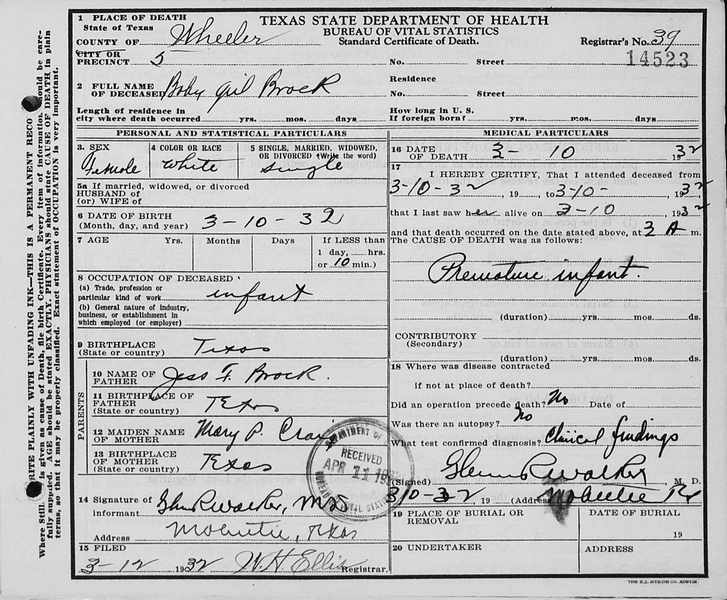 1 PLACE OF DEATH
State of Texas
COUNTY OF Wheeler
CITY OR
PRECINCT 5
TEXAS STATE DEPARTMENT OF HEALTH
BUREAU OF VITAL STATISTICS
Standard Certificate of Death.
Registrar's No. 39
14523
No. Street
2 FULL NAME OF DECEASED Baby Girl Brock
Residence
No. Street
Length of residence in
city where death occurred yrs. mos. days
How long in U. S.
If foreign born? yrs. mos. days
PERSONAL AND STATISTICAL PARTICULARS
3. SEX
Female
4 COLOR OR RACE
White
5 SINGLE, MARRIED, WIDOWED,
OR DIVORCED (Write the word)
Single
5a If married, widowed, or divorced
HUSBAND of
(or) WIFE of
6 DATE OF BIRTH
(Month, day, and year) 3-10-32
7 AGE Yrs. Months Days If LESS than
1 day, hrs.
or 10 min.)
8 OCCUPATION OF DECEASED
(a) Trade, profession or
particular kind of work infant
(b) General nature of industry,
business, or establishment in
which employed (or employer)
9 BIRTHPLACE
(State or country) Texas
PARENTS
10 NAME OF
FATHER Jess F. Brock.
11 BIRTHPLACE OF
FATHER
(State or country) Texas
12 MAIDEN NAME
OF MOTHER Mary P.
13 BIRTHPLACE OF
MOTHER
(State or country) Texas
14 Signature of
informant Glenn R Walker, MD
Address Mobeetie, Texas
15 FILED
3-12 1932 W.H Ellis Registrar.
MEDICAL PARTICULARS
16 DATE
OF DEATH 3- 10 1932
17
I HEREBY CERTIFY, That I attended deceased from
3-10-32, 19 , to 3-10-, 1932
that I last saw her alive on 3-10, 1932
and that death occurred on the date stated above, at 3 A m.
The CAUSE OF DEATH was as follows:
Premature infant.
(duration) yrs. mos. ds.
CONTRIBUTORY
(Secondary)
(duration) yrs. mos. ds.
18 Where was disease contracted
if not at place of death?
Did an operation precede death? No Date of
Was there an autopsy? No
What test confirmed diagnosis? Clinical findings
(Signed) Glenn R Walker M. D.
3/10-32 19 (Address) Mobeetie Tx
19 PLACE OF BURIAL OR
REMOVAL
DATE OF BURIAL
19
20 UNDERTAKER
ADDRESS
RECEIVED
APR 11